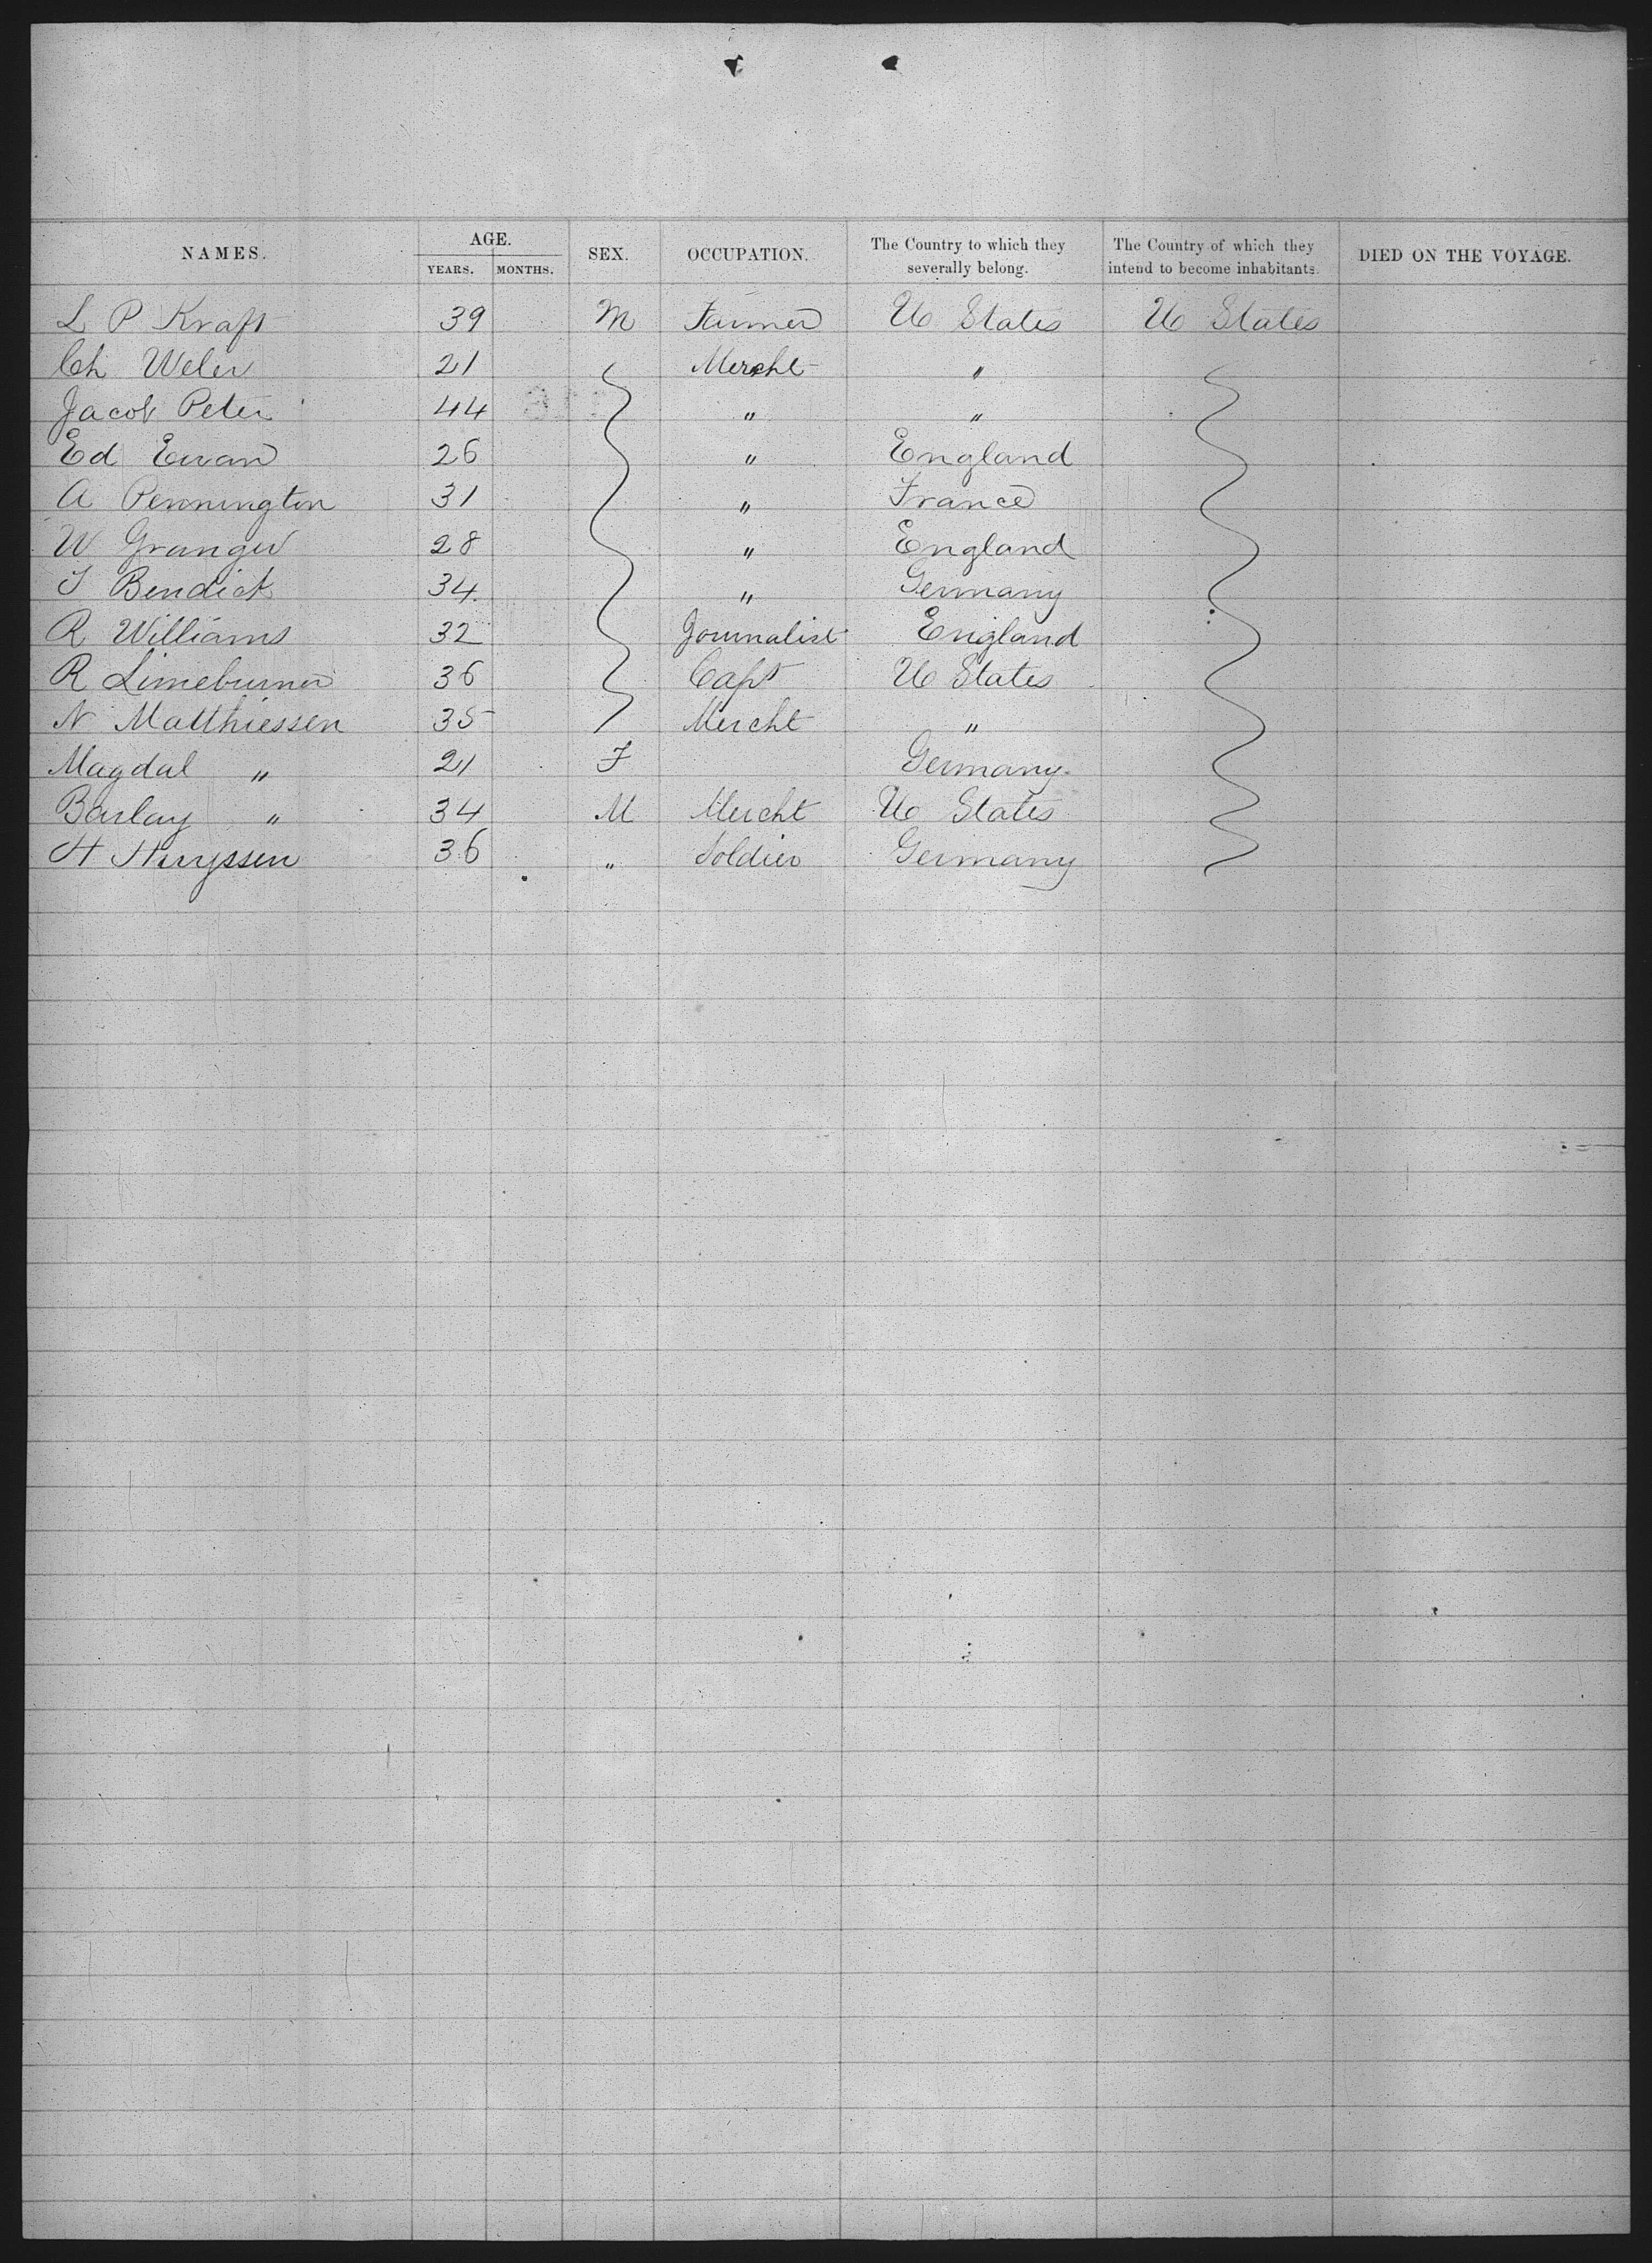 NAMES. AGE. SEX. OCCUPATION. The Country to which they severally belong. The Country of which they intend to become inhabitants. DIED ON THE VOYAGE.
YEARS. MONTHS.
L P Kraft 39 M Farmer U States U States
Ch Weler 21 Mercht "
Jacob Peter 44 " "
Ed Ewan 26 " England
A Pennington 31 " France
W Granger 28 " England
J Bendick 34 " Germany
R Williams 32 Journalist England
R Limeburner 36 Capt U States
N Matthiessen 35 Mercht "
Magdal " 21 F Germany
Barlay " 34 M Mercht U States
H 36 " Soldier Germany